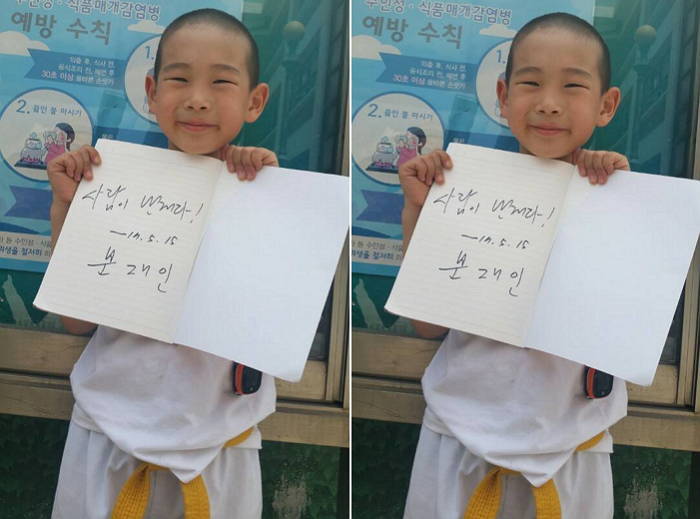 수인성·식품매개감염병
예방 수칙
1.
30초 이상 올바른 손씻기
2. 끓인 물 마시기
사람이 먼저다!
- 17. 5. 15
문재인
수인성·식품매개감염병
예방 수칙
1.
30초 이상 올바른 손씻기
2. 끓인 물 마시기
사람이 먼저다!
- 17. 5. 15
문재인